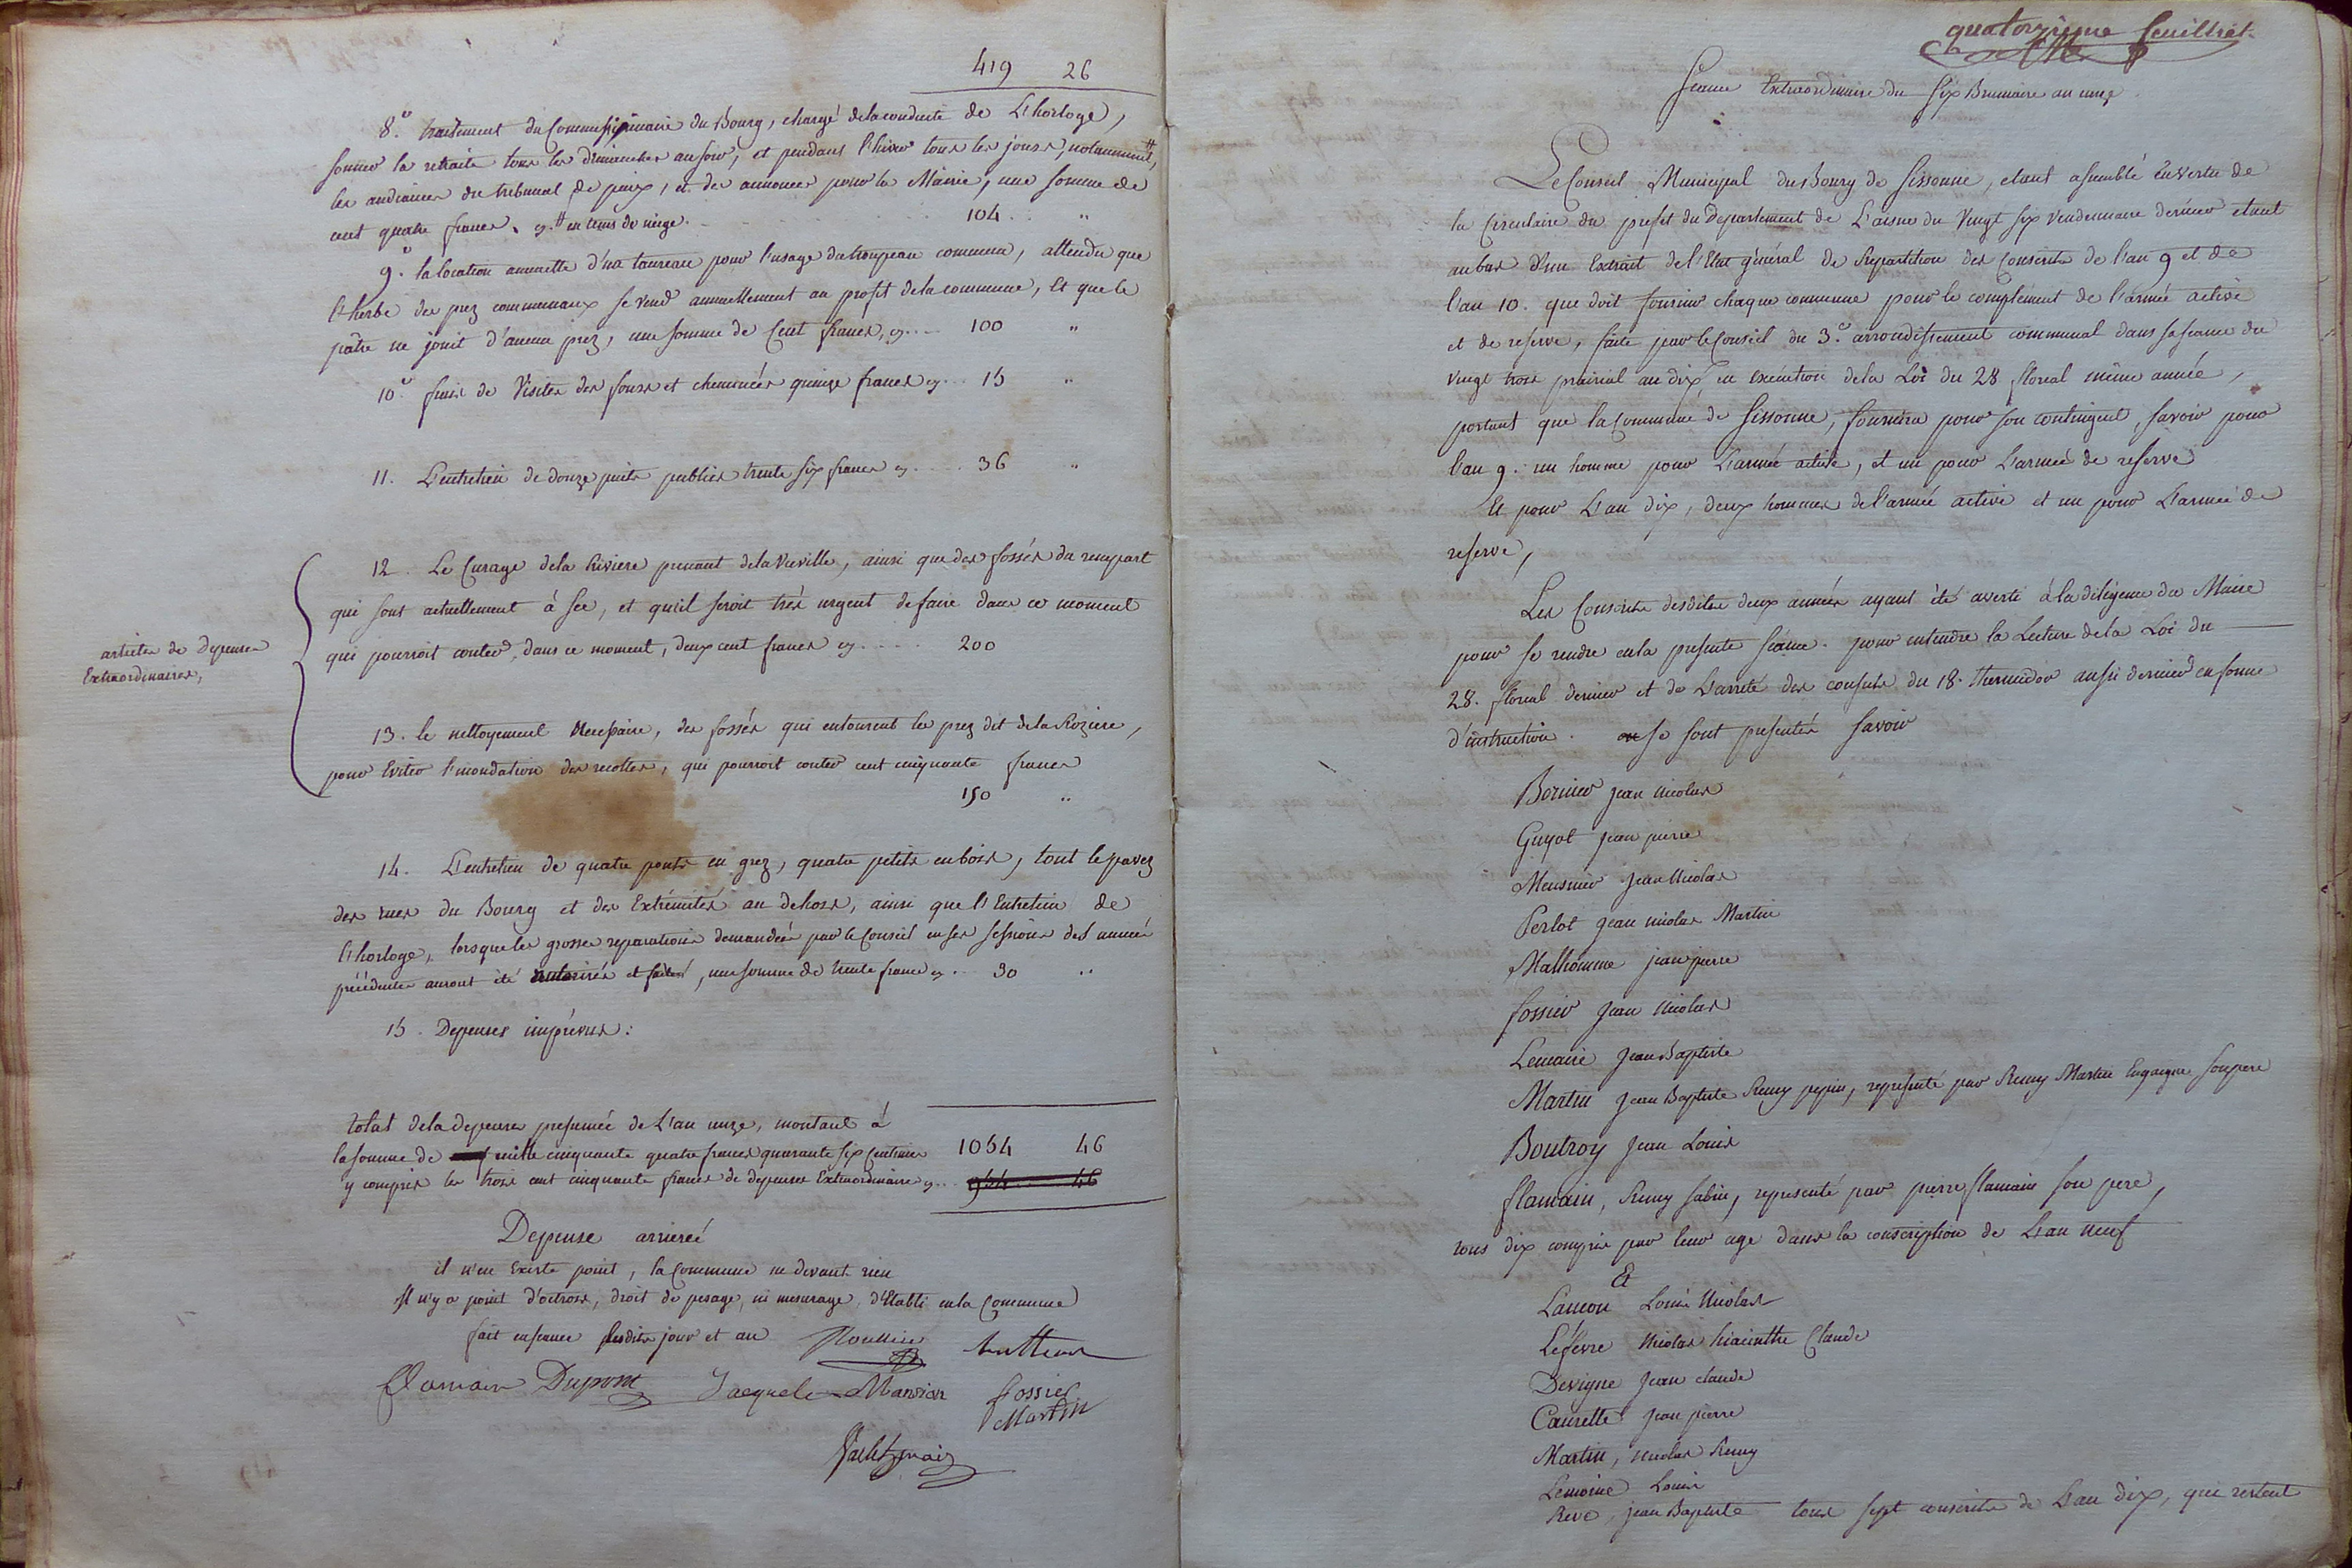 419 26
8.º traitement du Commissionnaire du Bourg, chargé de la conduite de L'horloge,
sonner la retraite tous les dimanches au soir, et pendant l'hiver tous les jours, notamment #,
les audiances du tribunal de paix, et des annonces pour la Mairie, une somme de
cent quatre francs. cy. # en tems de neige. 104 . . "
9.º la location annuelle d'un taureau pour l'usage du troupeau commun, attendu que
l'herbe des prez communaux se vend annuellement au profit de la commune, et que le
pâtre ne jouit d'aucun prez, une somme de Cent francs, cy .... 100 "
10.º frais de Visites des fours et cheminées quinze francs cy ... 15 "
11. L'entretien de douze puits publics trente six francs cy ..... 36 "
12. Le Curage de la Riviere prenant de la Vieville, ainsi que des fossés du rempart
qui sont actuellement à sec, et qu'il seroit très urgent de faire dans ce moment
qui pourroit couter, dans ce moment, deux cent francs cy ..... 200
articles de depenses
Extraordinaires,
13. le nettoyement necessaire, des fossés qui entourent les prez dit de la Roziere,
pour Eviter l'inondation des recoltes, qui pourroit couter cent cinquante francs
150 "
14. L'entretien de quatre ponts en grez, quatre petits en bois, tout le pavez
des rues du Bourg et des Extrémités au dehors, ainsi que l'Entretien de
l'horloge, lorsque les grosses reparations demandées par le Conseil en ses sessions des années
précédentes auront été autorisées et faites, une somme de trente francs cy .. 30 "
15. Depenses imprévues :
total de la depense presumée de L'an onze, montant à
la somme de mille cinquante quatre francs quarante six Centimes 1054 46
y compris les trois cent cinquante francs de depenses Extraordinaires cy ... 954 46
Depense arrierée
il n'en Existe point, la Commune ne devant rien
Il n'y a point d'octrois, droit de pesage, ni mesurage, d'Etabli en la Commune
fait en seance lesdits jour et an
Flamain Dupont Jacquel Mansion fossier
Martin
quatorzieme feuillet
Seance Extraordinaire du Six Brumaire an onze
Le Conseil Municipal du Bourg de Sissonne, etant assemblé en vertu de
la Circulaire du prefet du Departement de L'aisne du Vingt six Vendemiaire dernier etant
au bas d'un Extrait de l'Etat général de Repartition des Conscrits de l'an 9 et de
l'an 10. que doit fournir chaque commune pour le complément de l'armée active
et de reserve, faite par le Conseil du 3.e arrondissement communal dans sa seance du
vingt trois prairial an dix, en execution de la Loi du 28 floreal même année,
portant que la Commune de Sissonne, fournira pour son contingent, savoir pour
l'an 9. un homme pour L'armée active, et un pour L'armée de reserve
Et pour L'an dix, deux hommes de l'armée active et un pour L'armée de
reserve,
Les Conscrits desdites deux années ayant été averti à la diligence du Maire
pour se rendre en la presente séance. pour entendre la Lecture de la Loi du
28. floreal dernier et de L'arreté des consuls du 18. thermidor aussi dernier en forme
d'instruction. se sont presentés savoir
Bernier jean nicolas
Guyot jean pierre
Meusnier jean Nicolas
Perlot jean nicolas Martin
Malhomme jean pierre
fossier jean nicolas
Lemaire jean Baptiste
Martin jean Baptiste Remy pepin, representé par Remy Martin son pere
Boutroy jean Louis
flamain, Remy sabin, representé par pierre flamain son pere,
tous dix compris par leur age dans la conscription de L'an neuf
Et
Lancon Louis Nicolas
Lefevre nicolas hiacinthe Claude
Devigne jean claude
Caurette jean pierre
Martin, nicolas Remy
Lemoine Louis
Reve, jean Baptiste tous sept conscrits de L'an dix, qui restent